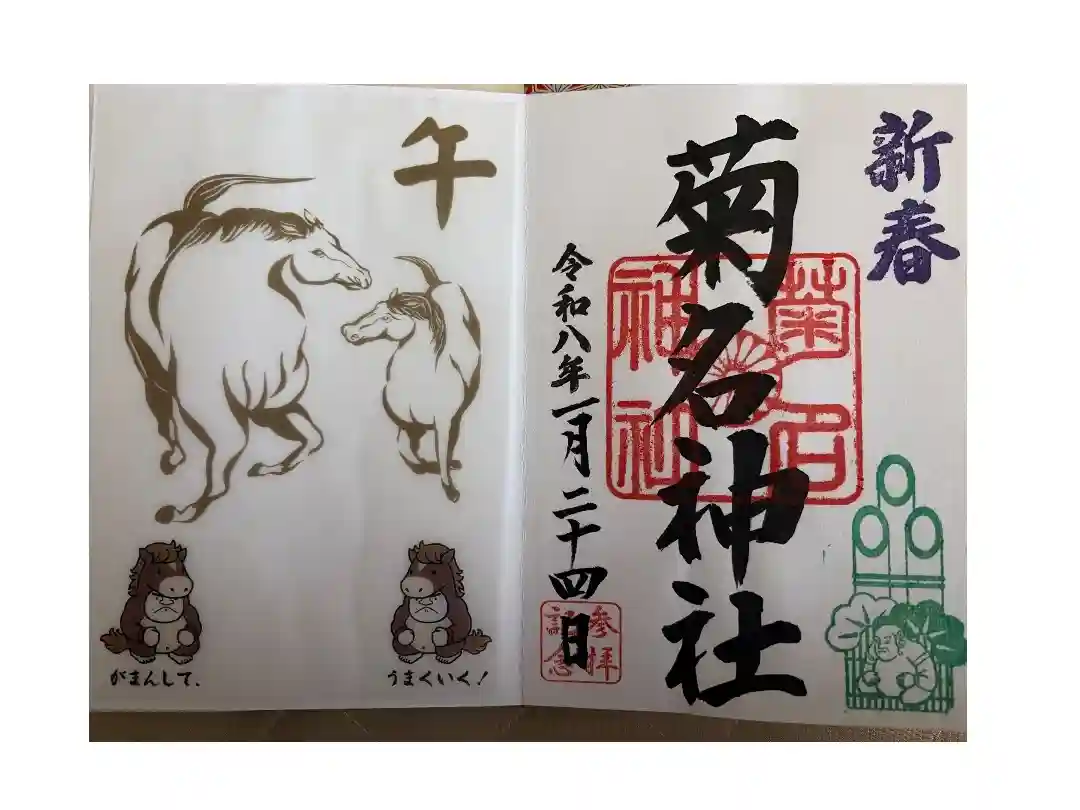 新春
菊名神社
菊名
神社
令和八年一月二十四日
参拝
記念
午
がまんして、
うまくいく！